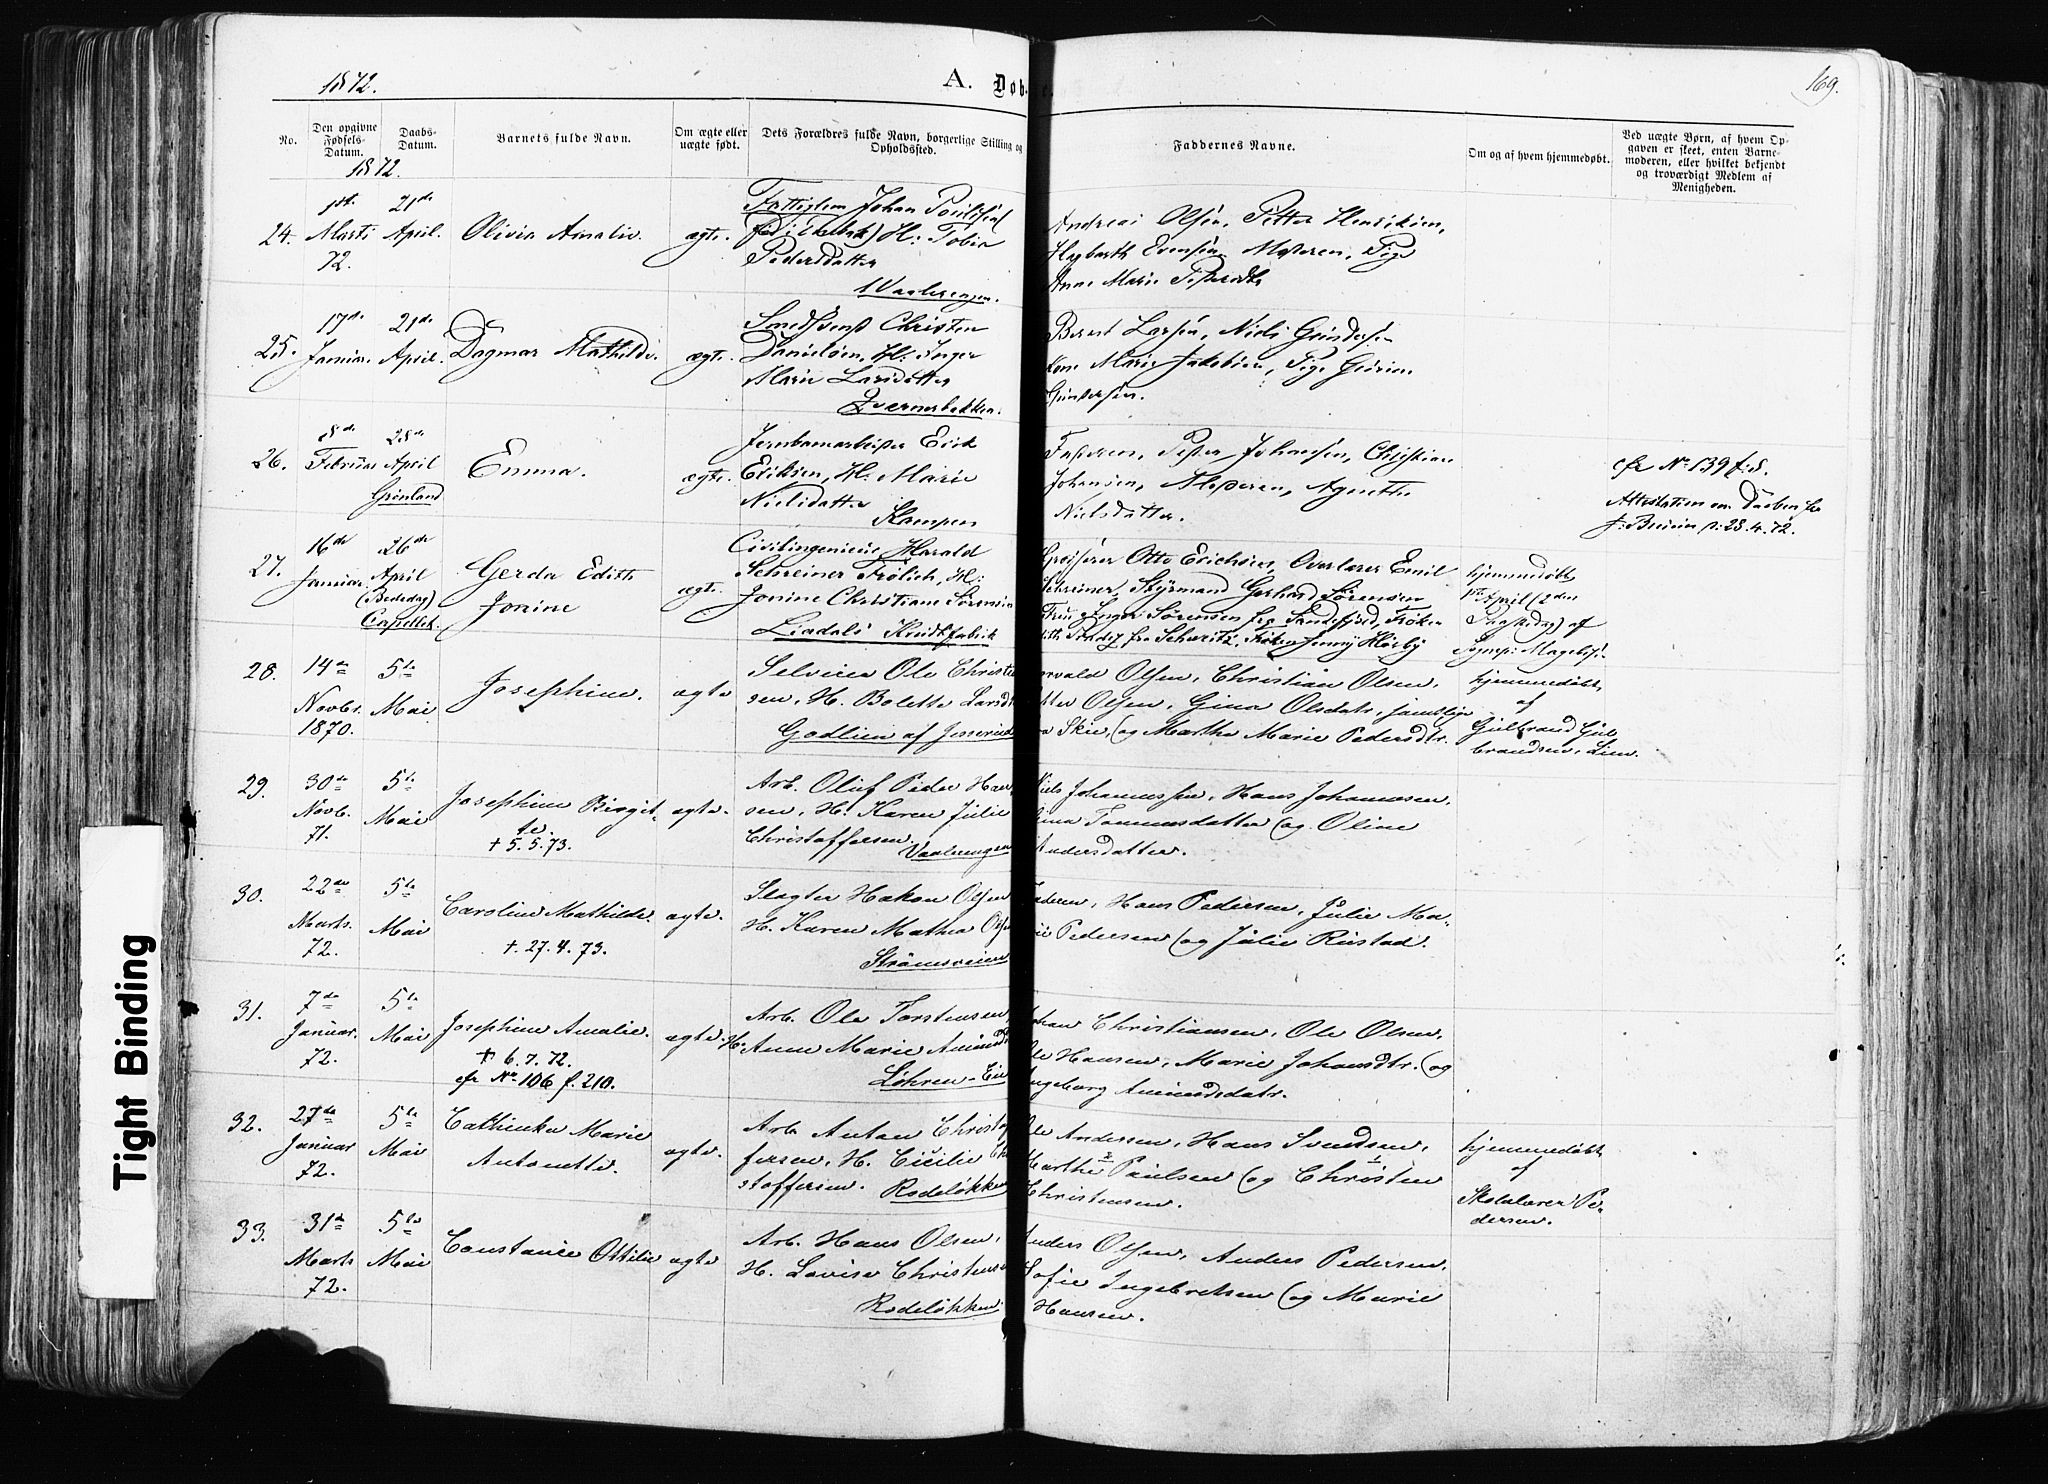 1872.
A. Døb-
e.
169.
No.
Den opgivne
Fødsels-
Datum.
Daabs-
Datum.
Barnets fulde Navn.
Om ægte eller
uægte født.
Dets Forældres fulde Navn, borgerlige Stilling og
Opholdssted.
Faddernes Navne.
Om og af hvem hjemmedøbt.
Ved uægte Børn, af hvem Op-
gaven er skeet, enten Barne-
moderen, eller hvilket bekjendt
og troværdigt Medlem af
Menigheden.
1872.
24.
1ste
Marts
72.
21de
April.
Olivia Amalie.
ægte.
Johan
H: Tobia
Pedersdatter
Vaalerengen.
Andreas Olsen, Petter Henriksen,
Hagbarth Evensen, Moderen, Pige
Anne Marie
25.
17de
Januar.
21de
April.
Dagmar Mathilde.
ægte.
Smedsvend Christen
Danielsen, H: Inger
Marie Larsdatter
Kværnerbekken.
Bernt Larsen, Niels Gundersen
Kone Marie Jakobsen, Pige Gurine
Gundersen.
26.
8de
Februar
28de
April
Grønland
Emma.
ægte.
Jernbanearbeider Erik
Eriksen, H: Marie
Nielsdatter
Kampen
Faderen, Peder Johansen, Christian
Johansen, Moderen, Agnethe
Nielsdatter.
cfr No 139 f. d.
Attestation om Daaben fra
28.4.72.
27.
16de
Januar.
26de
April
(Bededag)
Capellet.
Gerda Edith
Jonine
ægte.
Civilingeniør Harald
Schreiner Frølich, H:
Jonine Christiane Sørensen
Liadals Krudtfabrik
Grosserer Otto Erichsen, Overlærer Emil
Schreiner, Styrmand Gerhard Sørensen
Fru Inger Sørensen fra Sandefjord, Frøken
Edith fra Schweitz, Frøken Jenny Høiby
hjemmedøbt
1ste April (2den
Paaskedag) af
Sognepr: Magelssen
28.
14de
Novbr.
1870.
5te
Mai
Josephine.
ægte
Selveier Ole Christen
sen, H. Bolette Larsdtr
Godlien af
orvald Olsen, Christian Olsen,
tter Olsen, Gina Olsdatr, samtlige
ra Skie, (og Marthe Marie Pedersdtr.
hjemmedøbt
af
Gulbrand Gul
brandsen, Lien.
29.
30de
Novb.
71.
5te
Mai
Josephine Birgit-
te.
† 5.5.73.
ægte.
Arb. Oluf Peder Han
sen, H. Karen Julie
Christoffersen.
Vaalerengen
Niels Johannessen, Hans Johannesen,
Gina Tommesdatter (og Oline
Andersdatter.
30.
22de
Marts.
72.
5te
Mai
Caroline Mathilde.
† 27.4.73.
ægte.
Slagter Hakon Olsen
H. Karen Mathea Olsen
Strømsveien
Faderen, Hans Pedersen, Julie Ma-
rie Pedersen (og Julie Rustad.
31.
7de
Januar.
72.
5te
Mai
Josephine Amalie.
† 6.7.72.
cfr No 106 f. 210.
ægte.
Arb. Ole Torstensen,
H. Anne Marie Amunds
Løhren-Eie
ohan Christiansen, Ole Olsen,
Ole Hansen, Marie Johansdtr. (og
Ingeborg Amundsdatr.
32.
27de
Januar
72.
5te
Mai
Cathinka Marie
Antonette.
ægte.
Arb. Anton Christof
fersen, H. Cicilie Chri
stoffersen. Rodeløkken
Ole Andersen, Hans Svendsen,
Marthe Paulsen (og Christen
Christensen.
hjemmedøbt
af
Skolelærer Pe-
dersen.
33.
31de
Marts
72.
5te
Mai
Constance Ottilie
ægte
Arb. Hans Olsen,
H. Lovise Christensen
Rodeløkken
Anders Olsen, Anders Pedersen,
Sofie Ingebretsen (og Marie
Hansen.
Tight Binding